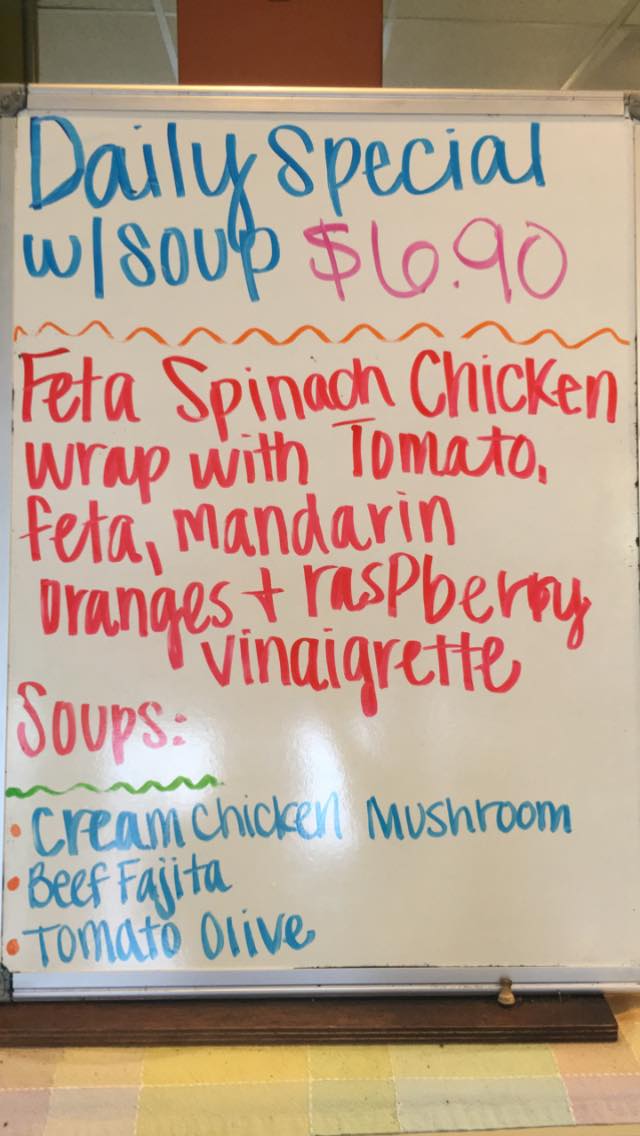 Daily Special
w/soup $6.90
Feta Spinach Chicken
wrap with Tomato,
feta, mandarin
oranges + raspberry
vinaigrette
Soups:
• Cream Chicken Mushroom
• Beef Fajita
• Tomato Olive